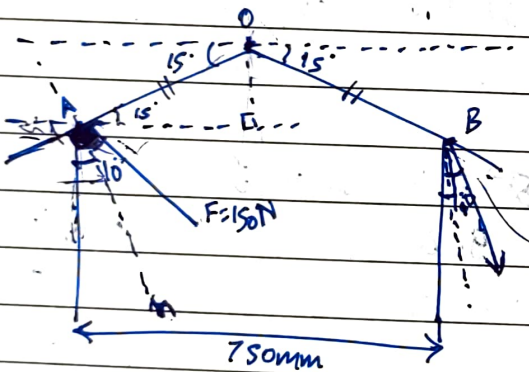 O
15° 15°
A
15°
B
10°
F=150N
750mm